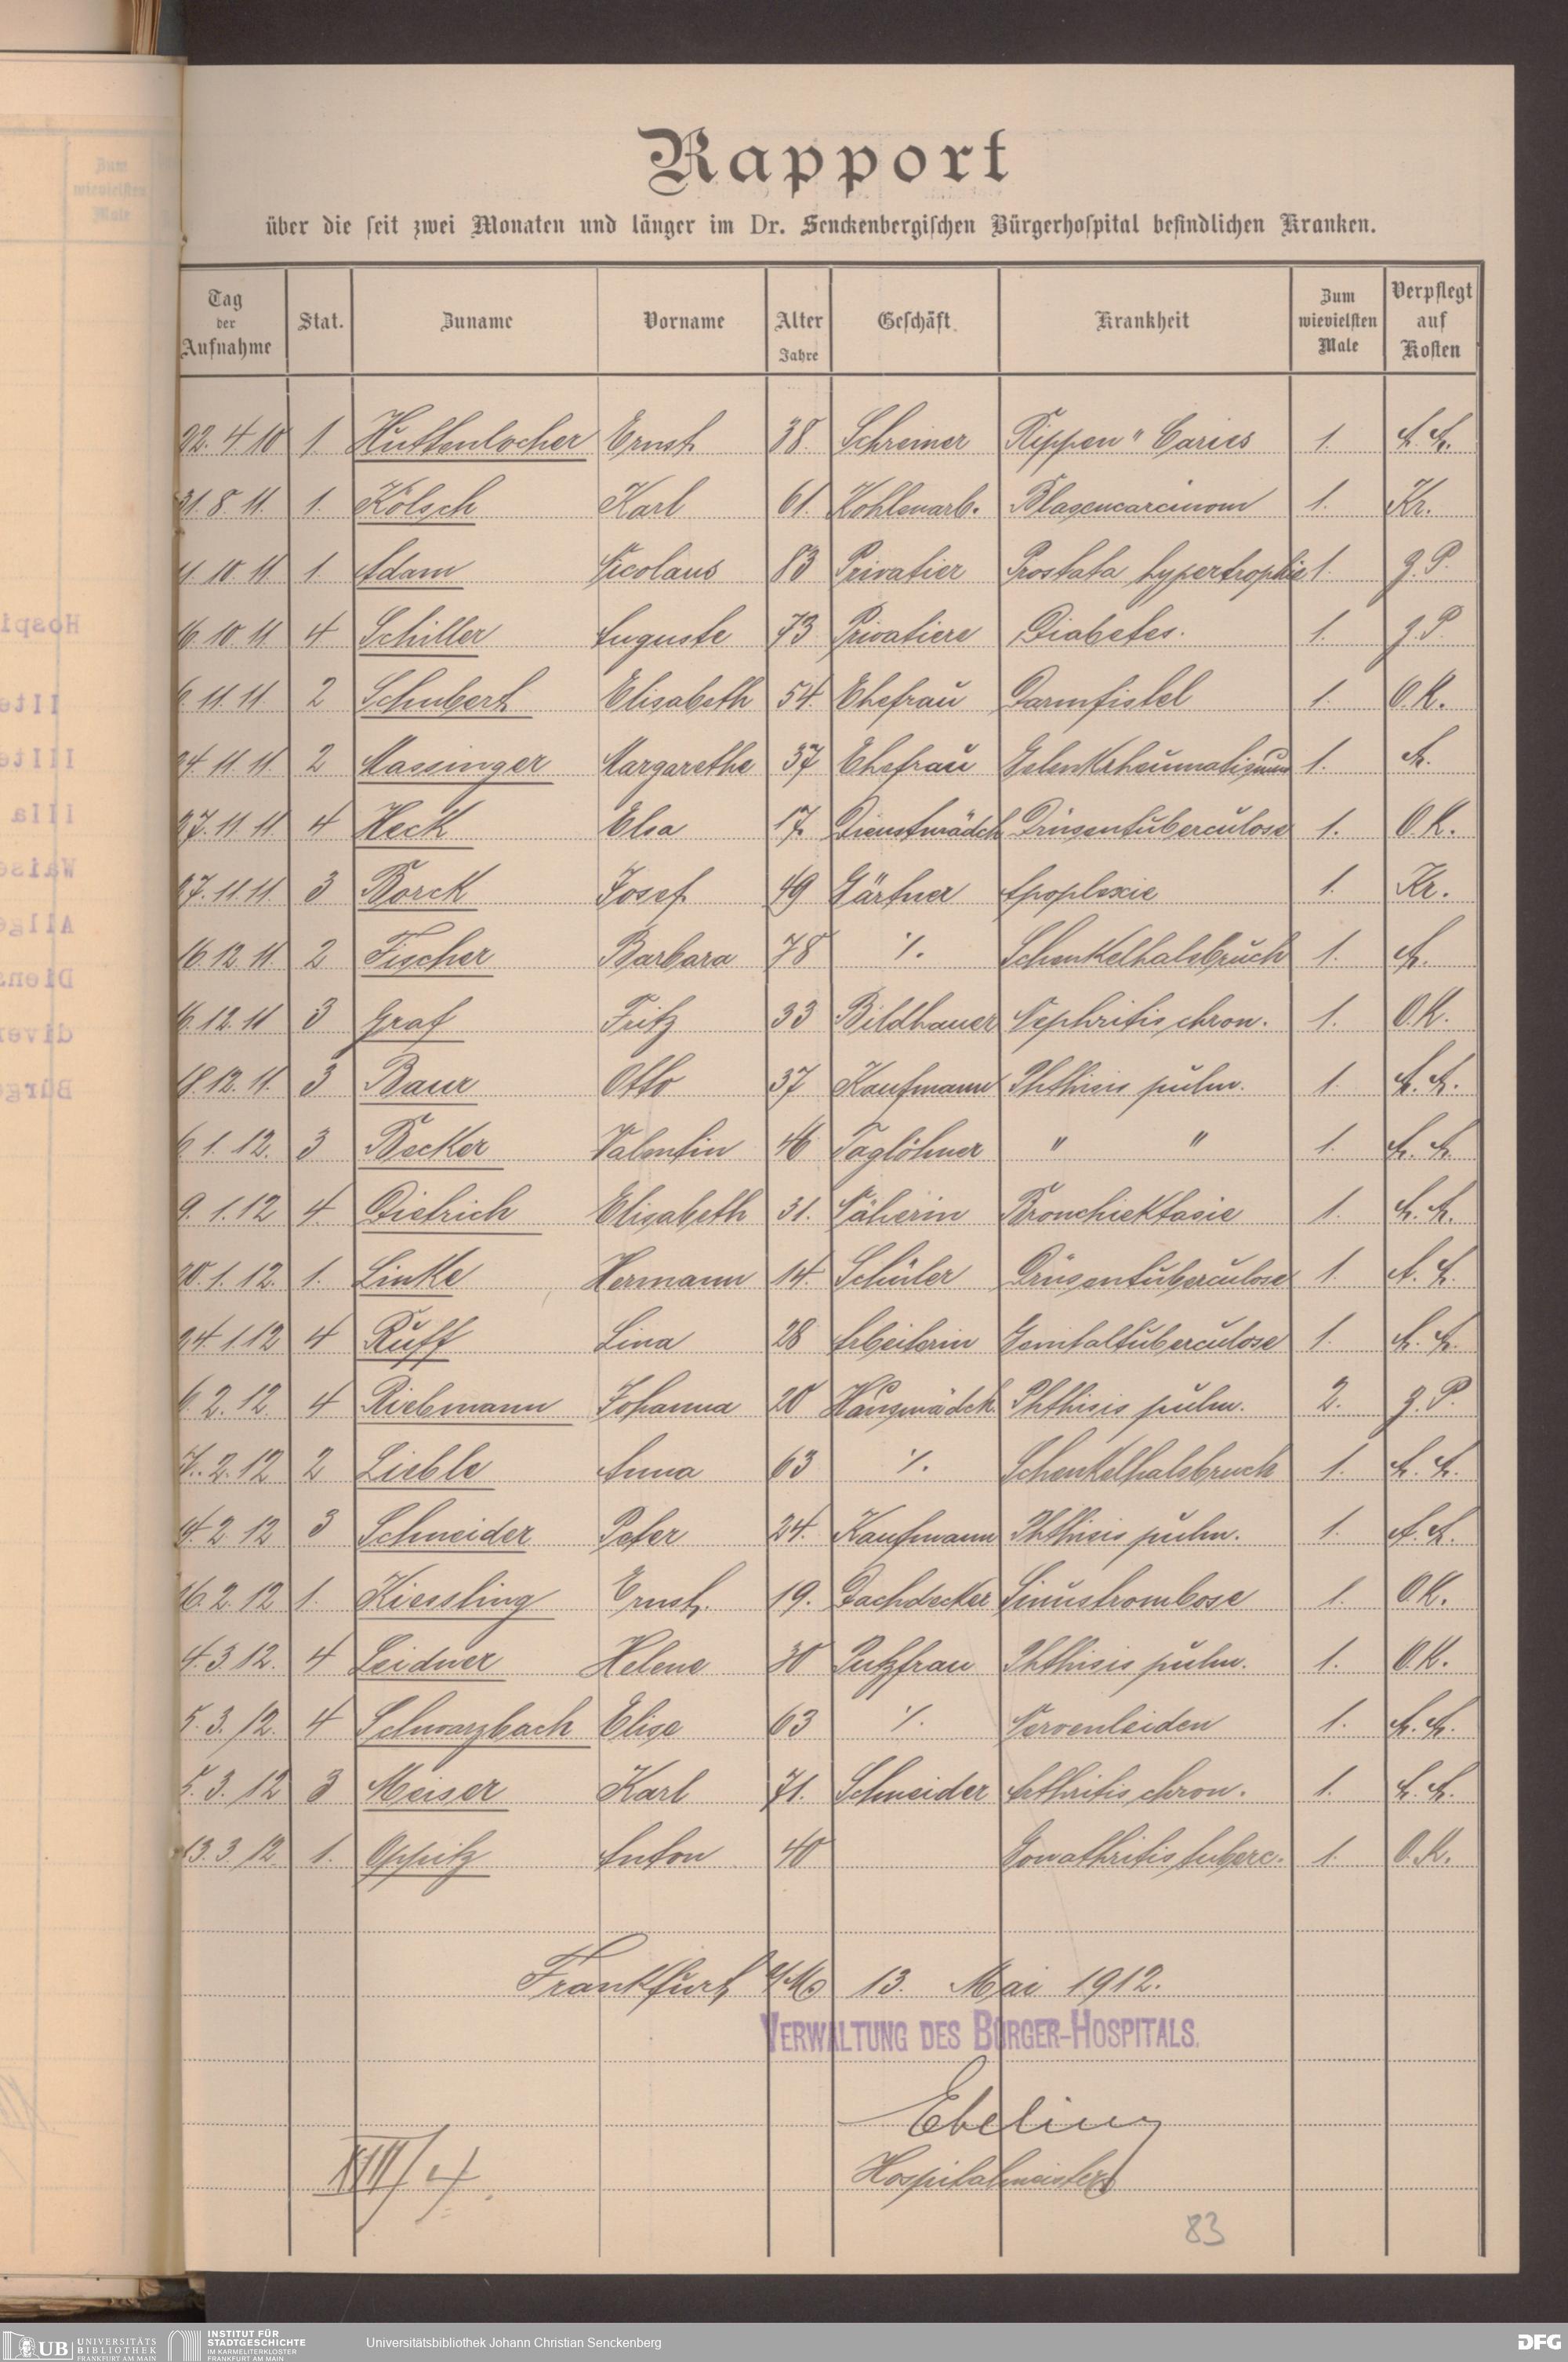 Rapport
über die seit zwei Monaten und länger im Dr. Senckenbergischen Bürgerhospital befindlichen Kranken.
Tag der Aufnahme Stat. Zuname Vorname Alter Jahre Geschäft Krankheit Zum wievielsten Male Verpflegt auf Kosten
22. 4 10 1. Huttenlocher Ernst 38. Schreiner Rippen " Caries 1. A. A.
31. 8. 11. 1. Kölsch Karl 61. Kohlenarb. Blasencarcinom 1. Kr.
10 11 1 Adam Nicolaus 83 Privatier Prostata hypertrophie 1. g. P.
16. 10. 11 4 Schiller Auguste 73 Privatiere Diabetes. 1. g. P.
6. 11 11 2 Schubert Elisabeth 54. Ehefrau Darmfistel 1. O. K.
24. 11 11. 2 Massinger Margarethe 37 Ehefrau Gelenkrheumatismus 1. A.
27. 11 11 4 Heck Elsa 17. Dienstmädch. Drüsentuberculose 1. O. K.
27. 11 11. 3 Borck Josef 49 Gärtner Apoplexie 1. Kr.
16. 12. 11. 2 Fischer Barbara 78 ./. Schenkelhalsbruch 1. A.
16. 12 11 3 Graf Fritz 33 Bildhauer Nephritis chron. 1. O. K.
18. 12. 11. 3 Baur Otto 37 Kaufmann Phthisis pulm. 1. A. A.
6 1. 12. 3 Becker Valentin 46 Taglöhner " " 1. A. A.
9. 1. 12 4. Dietrich Elisabeth 31. Näherin Bronchiektasie 1. A. A.
20. 1. 12. 1. Linke Hermann 14. Schüler Drüsentuberculose 1. A. A.
24. 1. 12 4 Ruff Lina 28 Arbeiterin Genitaltuberculose 1. A. A.
6. 2. 12. 4 Riebmann Johanna 20 Hausmädch. Phthisis pulm. 2. g. P.
7. 2. 12 2 Lieble Anna 63 ./. Schenkelhalsbruch 1. A. A.
14. 2 12 3 Schneider Peter 24. Kaufmann Phthisis pulm. 1. A. A.
16. 2. 12 1. Kiessling Ernst. 19. Dachdecker Sinustrombose 1. O. K.
4. 3. 12. 4 Leidner Helene 30 Putzfrau Phthisis pulm. 1. O. K.
5. 3. 12. 4 Schwarzbach Elise 63 ./. Nervenleiden 1. A. A.
5. 3. 12 3 Meiser Karl 71. Schneider Arthritis chron. 1. A. A.
13. 3. 12. 1. Oppitz Anton 40 Gonathritis tuberc. 1. O. K.
Frankfurt a/M 13. Mai 1912.
VERWALTUNG DES BÜRGER-HOSPITALS.
Ebeling
Hospitalmeister
XIII/4.
83
UB UNIVERSITÄTS BIBLIOTHEK FRANKFURT AM MAIN
INSTITUT FÜR STADTGESCHICHTE IM KARMELITERKLOSTER FRANKFURT AM MAIN
Universitätsbibliothek Johann Christian Senckenberg
DFG